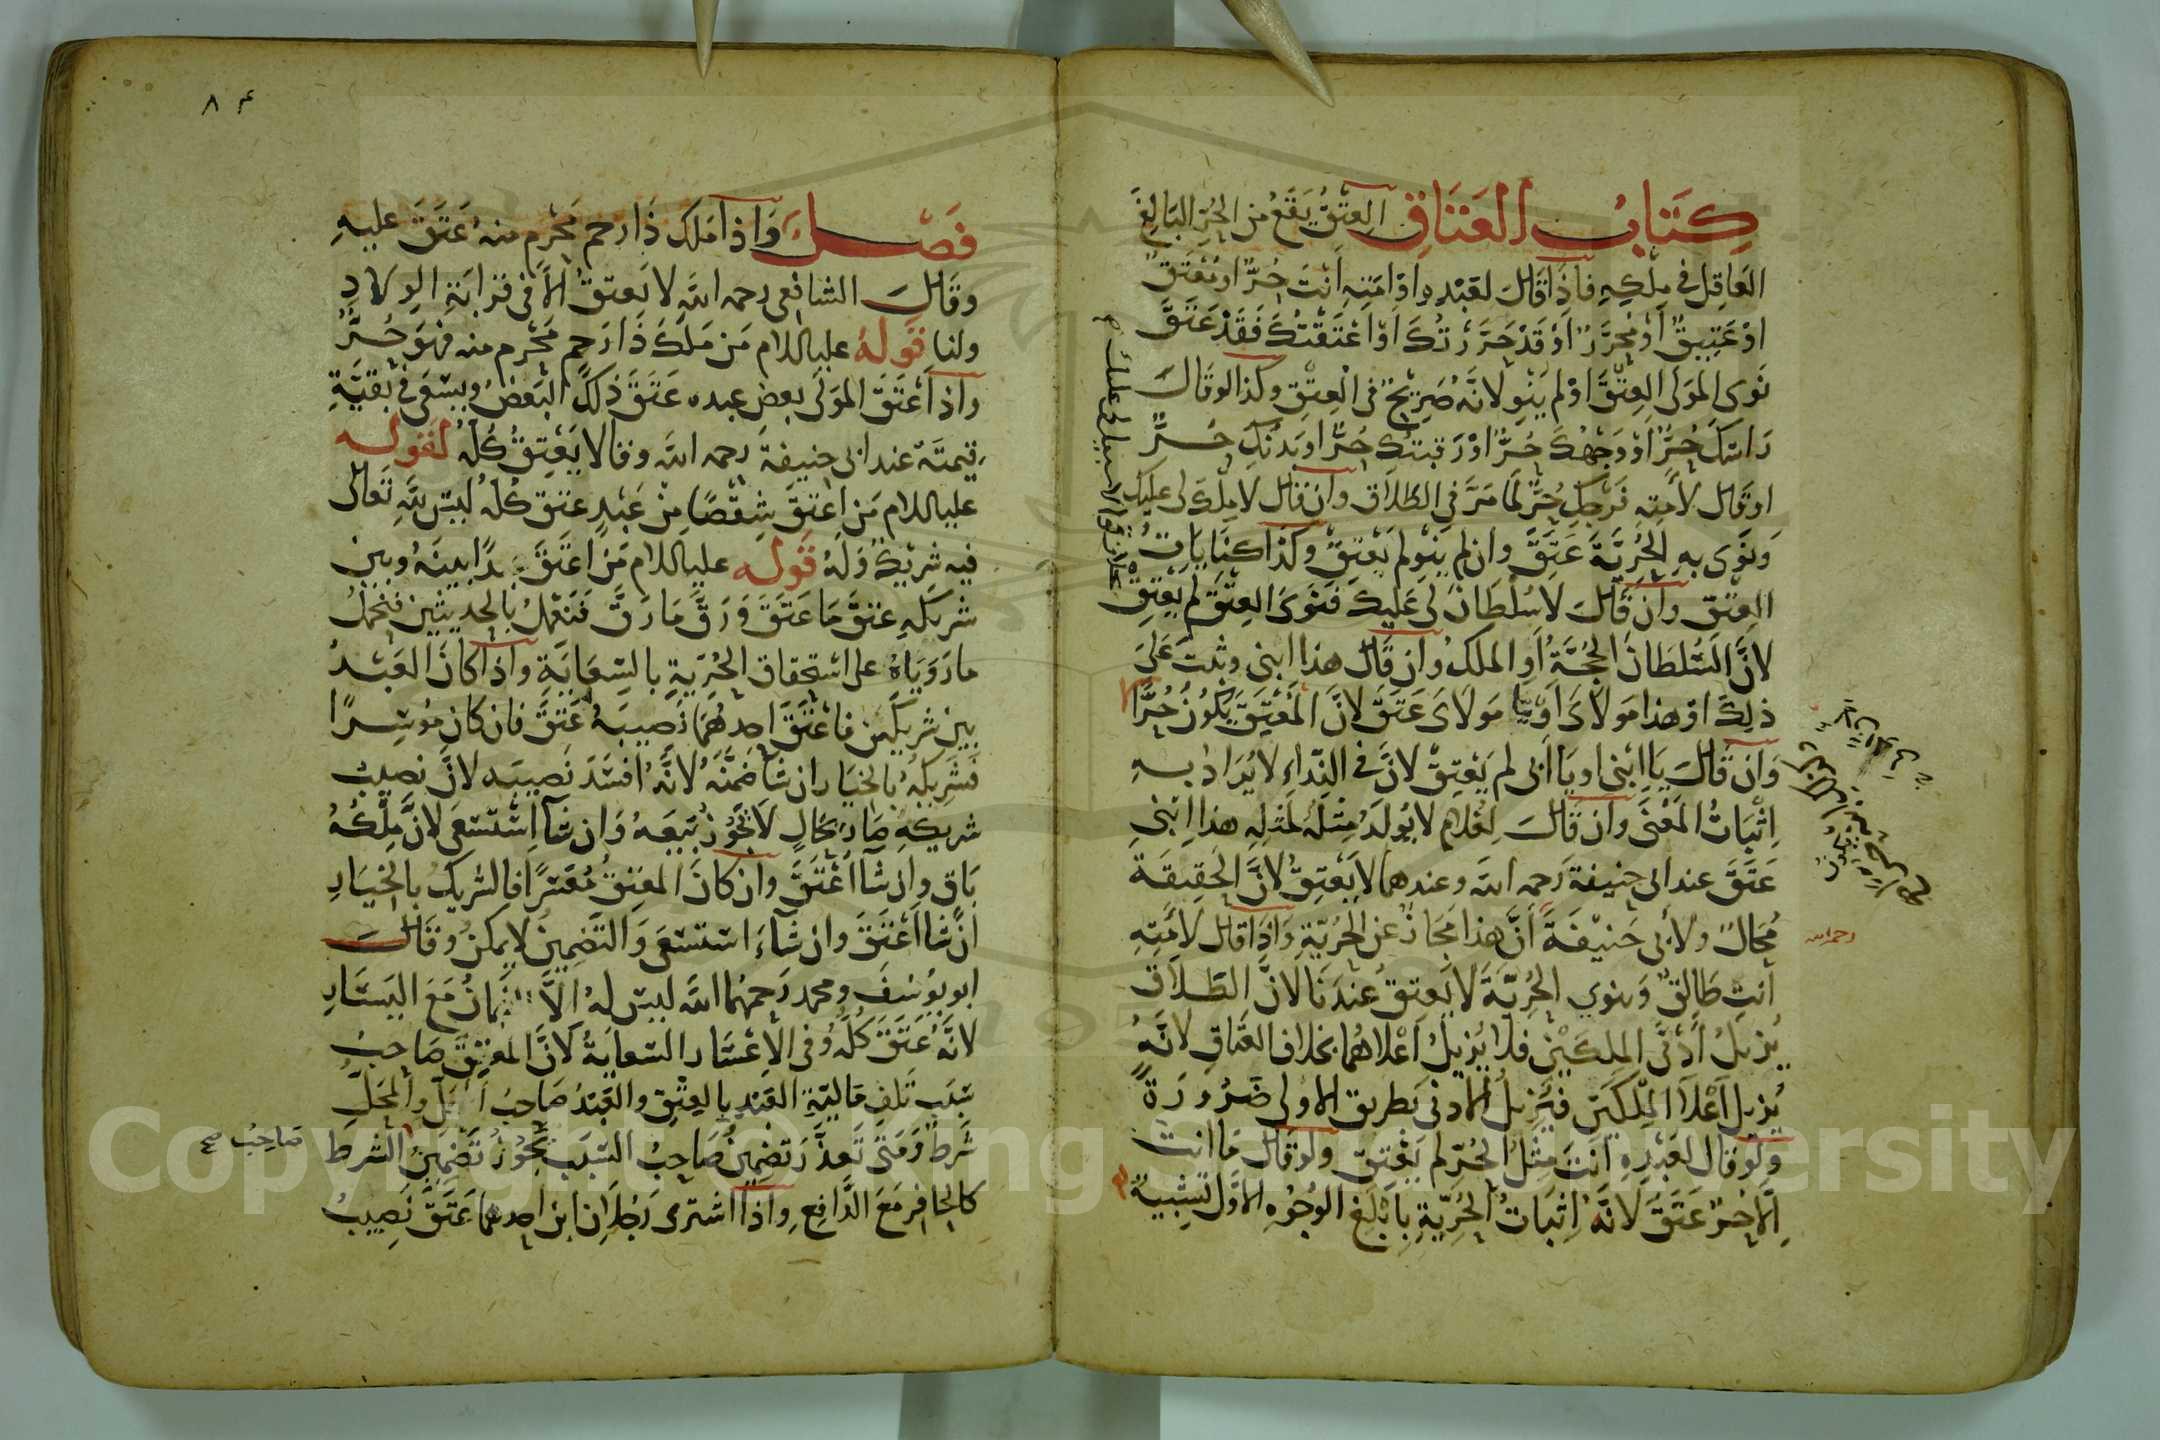 كِتَابُ العَتَاقِ العِتقُ يَقَعُ من الحُرِّ البَالِغ
العَاقِل في مِلْكِهِ فاذَا قَالَ لعَبْدِهِ اوْ امَتِهِ اَنْتَ حُرٌّ او مُعْتَقٌ
اوْ عَتِيقٌ اَوْ مُحَرَّرٌ اَوْ قَدْ حَرَّرْتُكَ اوْ اعْتَقْتُكَ فَقَدْ عَتَقَ
نَوى المَوْلَى العِتْقَ اوْ لم يَنْوِ لانَّه صَرِيحٌ في العِتْقِ وكذا لو قالَ
رَاسُكَ حُرٌّ اوْ وَجْهُكَ حُرٌّ اوْ رَقبتُكَ حُرٌّ او بَدنُكَ حُرٌّ
او قَال لأَمَتِه فَرْجُكِ حُرٌّ لمَا مَرَّ في الطَلَاق وان قال لا مِلْكَ لى عليك
وَنَوَى بهِ الحُرِيَّةَ عَتَقَ وان لم يَنْوِ لم يَعْتِقْ وكَذَا كِنَايَاتُ
العِتْقِ وان قَالَ لا سُلْطَانَ لى عَلَيكَ فنَوَى العِتْقَ لم يَعْتِقْ
لانَّ السُّلطَانَ الحُجَّةُ اَوِ الملكُ وان قَال هذا ابنى وثبتَ عَلَى
ذلِكَ اوْ هذا مَولَاىَ اَوْ يَا مَولَاىَ عَتَقَ لانَّ المُعْتَقَ يَكُونُ حُرًّا
وَان قَالَ يَا ابْنى او يَا اَخى لم يَعْتِقْ لانَّ في النِّداءِ لا يُرَادُ بهِ
اِثْبَاتُ المَعْنَى وان قَالَ لِغُلامٍ لا يُولَدُ مِثلُهُ لمثلِهِ هذا ابْنى
عَتَقَ عند ابى حنيفة رَحمه الله وعندهما لا يَعْتِقُ لانَّ الحَقِيقَةَ
مُحالٌ ولأبى حَنيْفَةَ اَنَّ هذا مَجَازٌ عن الحُريَّةِ وَاذا قال لأَمَتِهِ
رحمه الله
انتِ طَالِقٌ وينوي الحُرِيَّةَ لا يَعتِقُ عِندَنَا لانَّ الطَّلاقَ
يُزيلُ اَدْنَى المِلكَيْنِ فلا يُزيلُ اَعْلاهُما بخلاف العَتاقِ لانَّهُ
يُزيل اَعْلَا المِلْكَيْنِ فيُزيلُ الادنى بَطريق الاولى ضَرُورَةً
ولو قال لعَبْدِهِ اَنتَ مِثلُ الحُرِّ لم يَعْتِقْ ولو قَالَ مَا انتَ
اِلَّا حُرٌّ عَتَقَ لانَّهُ اثبَاتُ الحُرِّيَّةِ بِابْلَغِ الوُجُوْهِ الاوَّل تشبيهٌ
٨٤
فَصْلٌ وَاذا مَلَكَ ذَا رحمٍ مَحْرَمٍ منهُ عَتَقَ عليهِ
وقَالَ الشافعى رحمه الله لا يَعتِقُ الا فى قَرابَةِ الوِلَادِ
ولنا قَولُهُ عليه السلام مَن مَلَكَ ذَا رَحِمٍ مَحْرَمٍ منه فهُوَ حُرٌّ
واذا اَعْتَقَ المَوْلَى بعضَ عبده عَتَقَ ذلِكَ البَعضُ ويَسْعَى فى بَقيَّةِ
قيمتَه عند ابى حنيفةَ رحمه الله وقالا يَعْتِقُ كُلُّهُ لقوله
عليه السلام مَن اَعتَقَ شِقْصًا مِنْ عَبْدٍ عتقَ كلُهُ ليسَ للهِ تعَالى
فيه شريكٌ وَلَهُ قَوله عليه السلام مَن اعتَقَ عبدًا بينَهُ وبين
شريكِهِ عتقَ مَا عَتَقَ وَرَقَّ مَا رَقَّ فَنَعْمَلُ بالحديثين فنحملُ
ما رَوَيَاهُ على استحقاق الحُرِّيةِ بالسِّعَايَةِ واذا كانَ العَبْدُ
بين شريكَين فاعْتَقَ احدُهُمَا نَصِيبَهُ عَتَقَ فان كان مُوسِرًا
فشَرِيكهُ بالخيَار ان شاءَ ضَمَّنَهُ لانَّهُ افسَدَ نَصِيبَه لانَّ نصيبَ
شريكهِ صَارَ بحَالٍ لا يَجُوزُ بَيعَهُ وَان شآءَ اسْتَسْعَى لانَّ مِلْكَهُ
بَاقٍ وان شآءَ اَعْتَقَ وان كانَ المعتِقُ مُعْسِرًا فالشريكُ بالخيَارِ
انْ شاءَ اَعْتَقَ وان شآءَ استَسْعَى وَالتَضمِينُ لا يمكنُ وقَالَ
ابو يُوسُفَ ومحمد رَحِمهُما الله ليسَ لهُ الَّا الضَّمَانُ مَعَ اليَسَارِ
لانَّهُ عَتَقَ كلُّهُ وفى الاعْسَار السّعايَةُ لانَّ المُعتِقَ صَاحِبُ
سَبَبِ تَلَفِ مَاليَّةِ العَبْدِ بالعِتْقِ والعَبْدُ صَاحِبُ المَحَلِّ والمَحَلُّ
شَرطٌ وَمَتى تَعذَّرَ تضمِينُ صَاحِبُ السَبَب يَجُوزُ تَضمينُ الشرط
صَاحِبُ صح
كالحافرِ مَعَ الدَّافِعِ وَاذا اشترى رَجُلَانِ ابنَ احدهما عَتَقَ نَصِيبُ